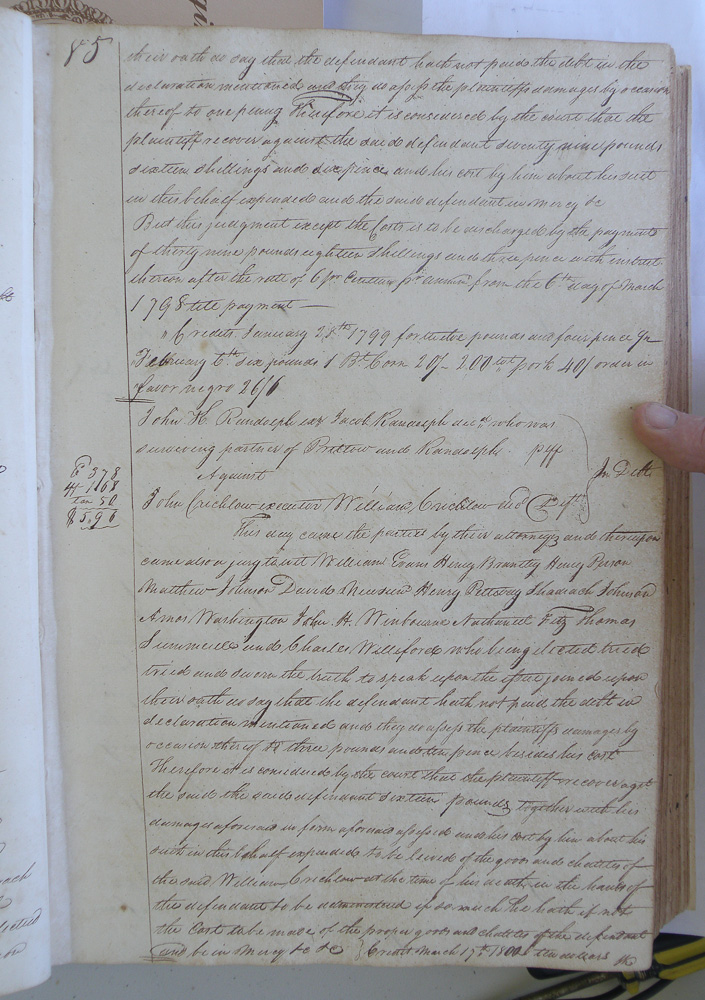 85
their oath do say that the defendant hath not paid the debt in the
declaration mentioned and they do assess the plaintiffs damages by occasion
thereof to one penny Therefore it is considered by the court that the
plaintiff recover against the said defendant seventy nine pounds
sixteen shillings and six pence and his cost by him about his suit
in this behalf expended and the said defendant in mercy &c
But this judgment except the Costs is to be discharged by the payment
of thirty nine pounds eighteen shillings and three pence with interest
thereon after the rate of 6 per Centum pr annum from the 6th day of March
1798 till payment —
" Credits January 28th 1799 for twelve pounds and four pence
February 6th six pounds 1 Bl Corn 20/- 200 wt pork 40/ order in
favor negro 26/6
John H. Randolph exr Jacob Randolph decd who was
surviving partner of Bretlow and Randolph plff
Against
In Debt
John Crichlow executor William Crichlow decd Deft
C 378
168
tax 50
$ 5.96
This day came the parties by their attorneys and thereupon
came also a jury to wit William Evans Henry Brantly Henry Person
Matthew Johnson David Newsum Henry Pettway Shadrach Johnson
Amos Washington John H. Winbourne Nathaniel Fitz Thomas
Summerell and Charles Williford who being elected tried
tried and sworn the truth to speak upon the issue joined upon
their oath do say that the defendant hath not paid the debt in
declaration mentioned and they do assess the plaintiffs damages by
occasion thereof to three pounds and ten pence besides his cost
Therefore it is considered by the court that the plaintiff recover agst
the said the said defendant sixteen pounds together with his
damages aforesaid in form aforesaid assessed and his cost by him about his
suit in this behalf expended to be levied of the goods and chattles of
the said William Crichlow at the time of his death in the hands of
the defendant to be administered if so much he hath if not
the Cost to be made of the proper goods and chattles of the defendant
and be in Mercy &c &c Credit March 17th 1800 ten dollars